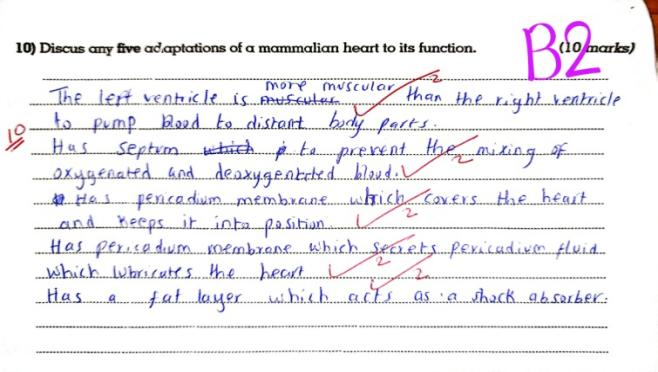 B2
10) Discus any five adaptations of a mammalian heart to its function. (10 marks)
The left ventricle is muscular more muscular than the right ventricle 2
to pump blood to distant body parts.
10
Has septum which is to prevent the mixing of 2
oxygenated and deoxygentcted bloud.
Has pericadium membrane which covers the heart
and keeps it into position. 2
Has pericadium membrane which secrets pericadium fluid
which lubricates the heart 2
Has a fat layer which acts as a shock absorber. 2